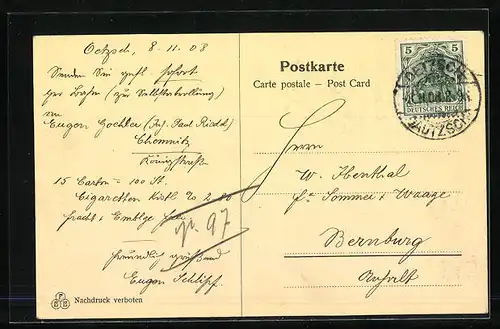 Oetzsch, 8.11.08
Senden Sie gefl. sofort
per Bahn (zur Vollst
an
Eugen Goehler (Inh. Paul Riedel)
Chemnitz
Königstraße
15 Carton = 100 St.
Cigaretten Kistl 20 2.80
fracht & Emblge frei
freundlich grüßend
Eugen Schlipf
97
Nachdruck verboten
Postkarte
Carte postale – Post Card
5 5
DEUTSCHES REICH
GAUTZSCH
Herrn
W. Ibenthal
fa Sommer & Waage
Bernburg
Anhalt